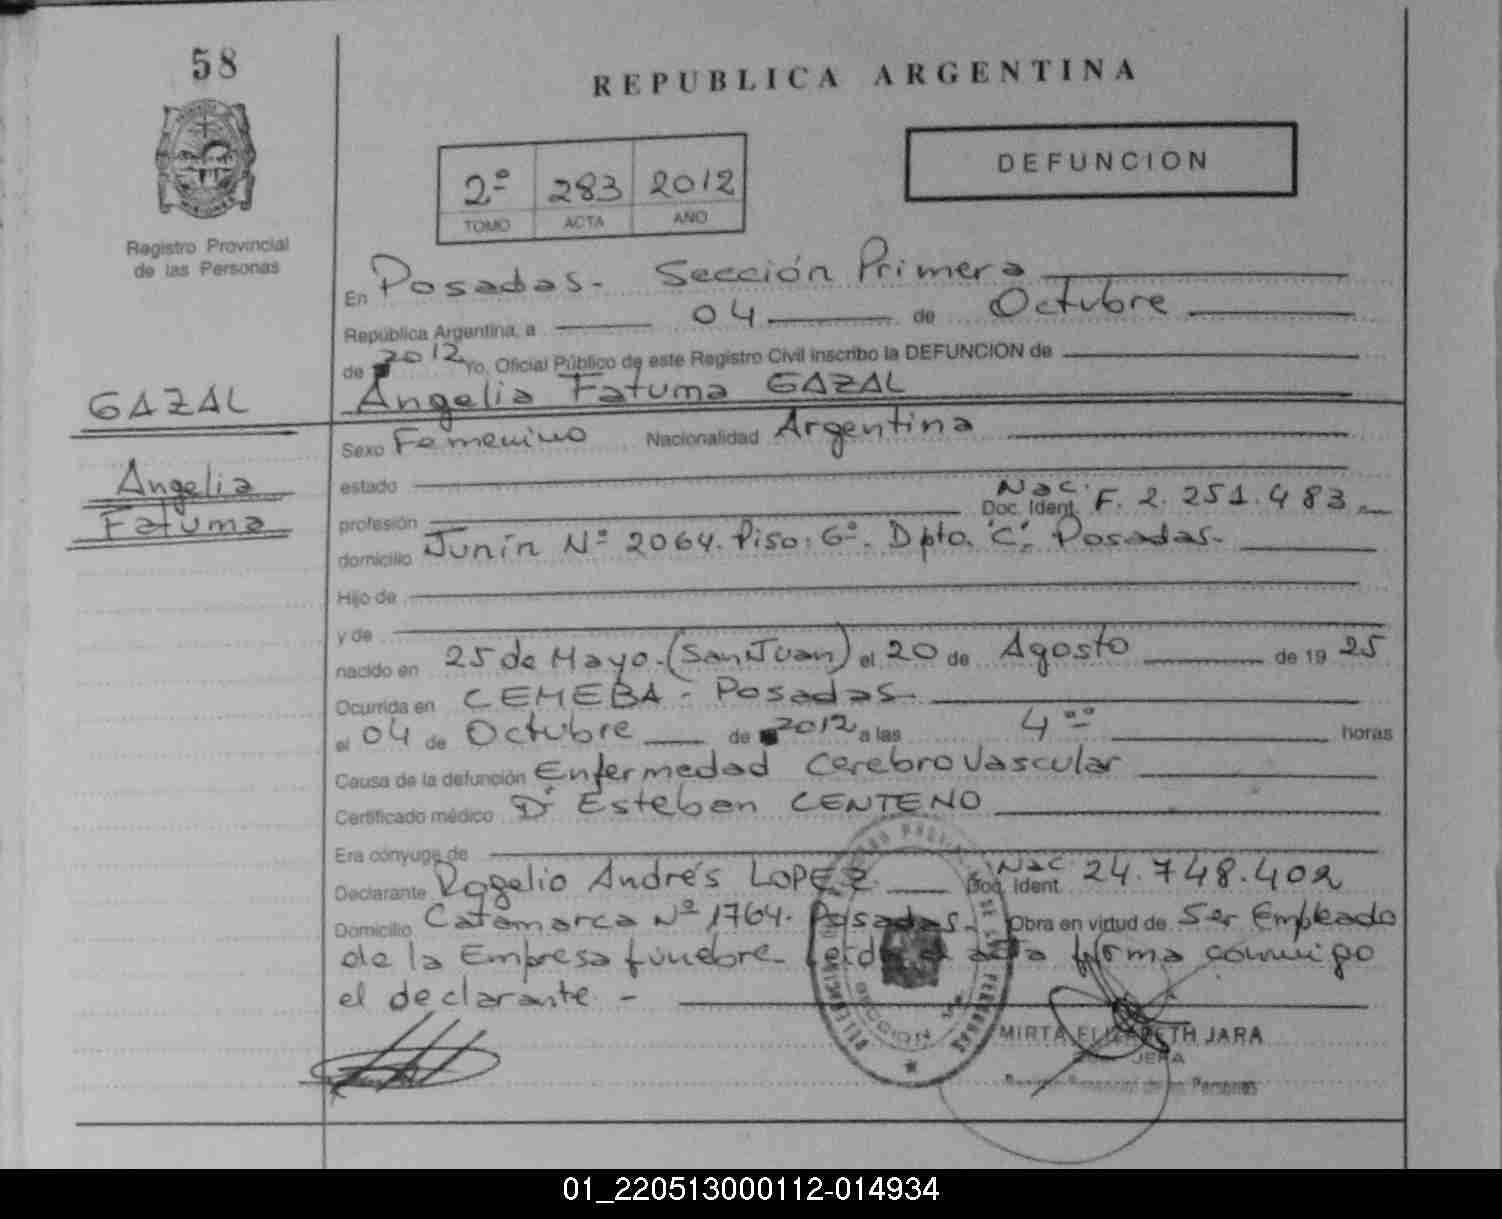 58
REPUBLICA ARGENTINA
DEFUNCION
2º 283 2012
TOMO ACTA AÑO
Registro Provincial
de las Personas
En Posadas - Sección Primera
República Argentina, a 04 de Octubre
de 2012 Yo, Oficial Público de este Registro Civil inscribo la DEFUNCION de
GAZAL
Angelia Fatuma GAZAL
Sexo Femenino Nacionalidad Argentina
Angelia
Fatuma
estado
profesión Nac. Doc. Ident. F. 2.251.483
domicilio Junín Nº 2064. Piso: 6º. Dpto. "C". Posadas.
Hijo de
y de
nacido en 25 de Mayo - (San Juan) el 20 de Agosto de 19 25
Ocurrida en CEMEBA - Posadas -
el 04 de Octubre de 2012 a las 4ºº horas
Causa de la defunción Enfermedad Cerebro Vascular
Certificado médico Dr Esteban CENTENO
Era cónyuge de
Declarante Rogelio Andrés LOPEZ Nac. Doc. Ident. 24.748.402
Domicilio Catamarca Nº 1764. Posadas. Obra en virtud de Ser Empleado
de la Empresa fúnebre. Leída el acta firma conmigo
el declarante -
MIRTA ELIZABETH JARA
de las Personas
01_220513000112-014934